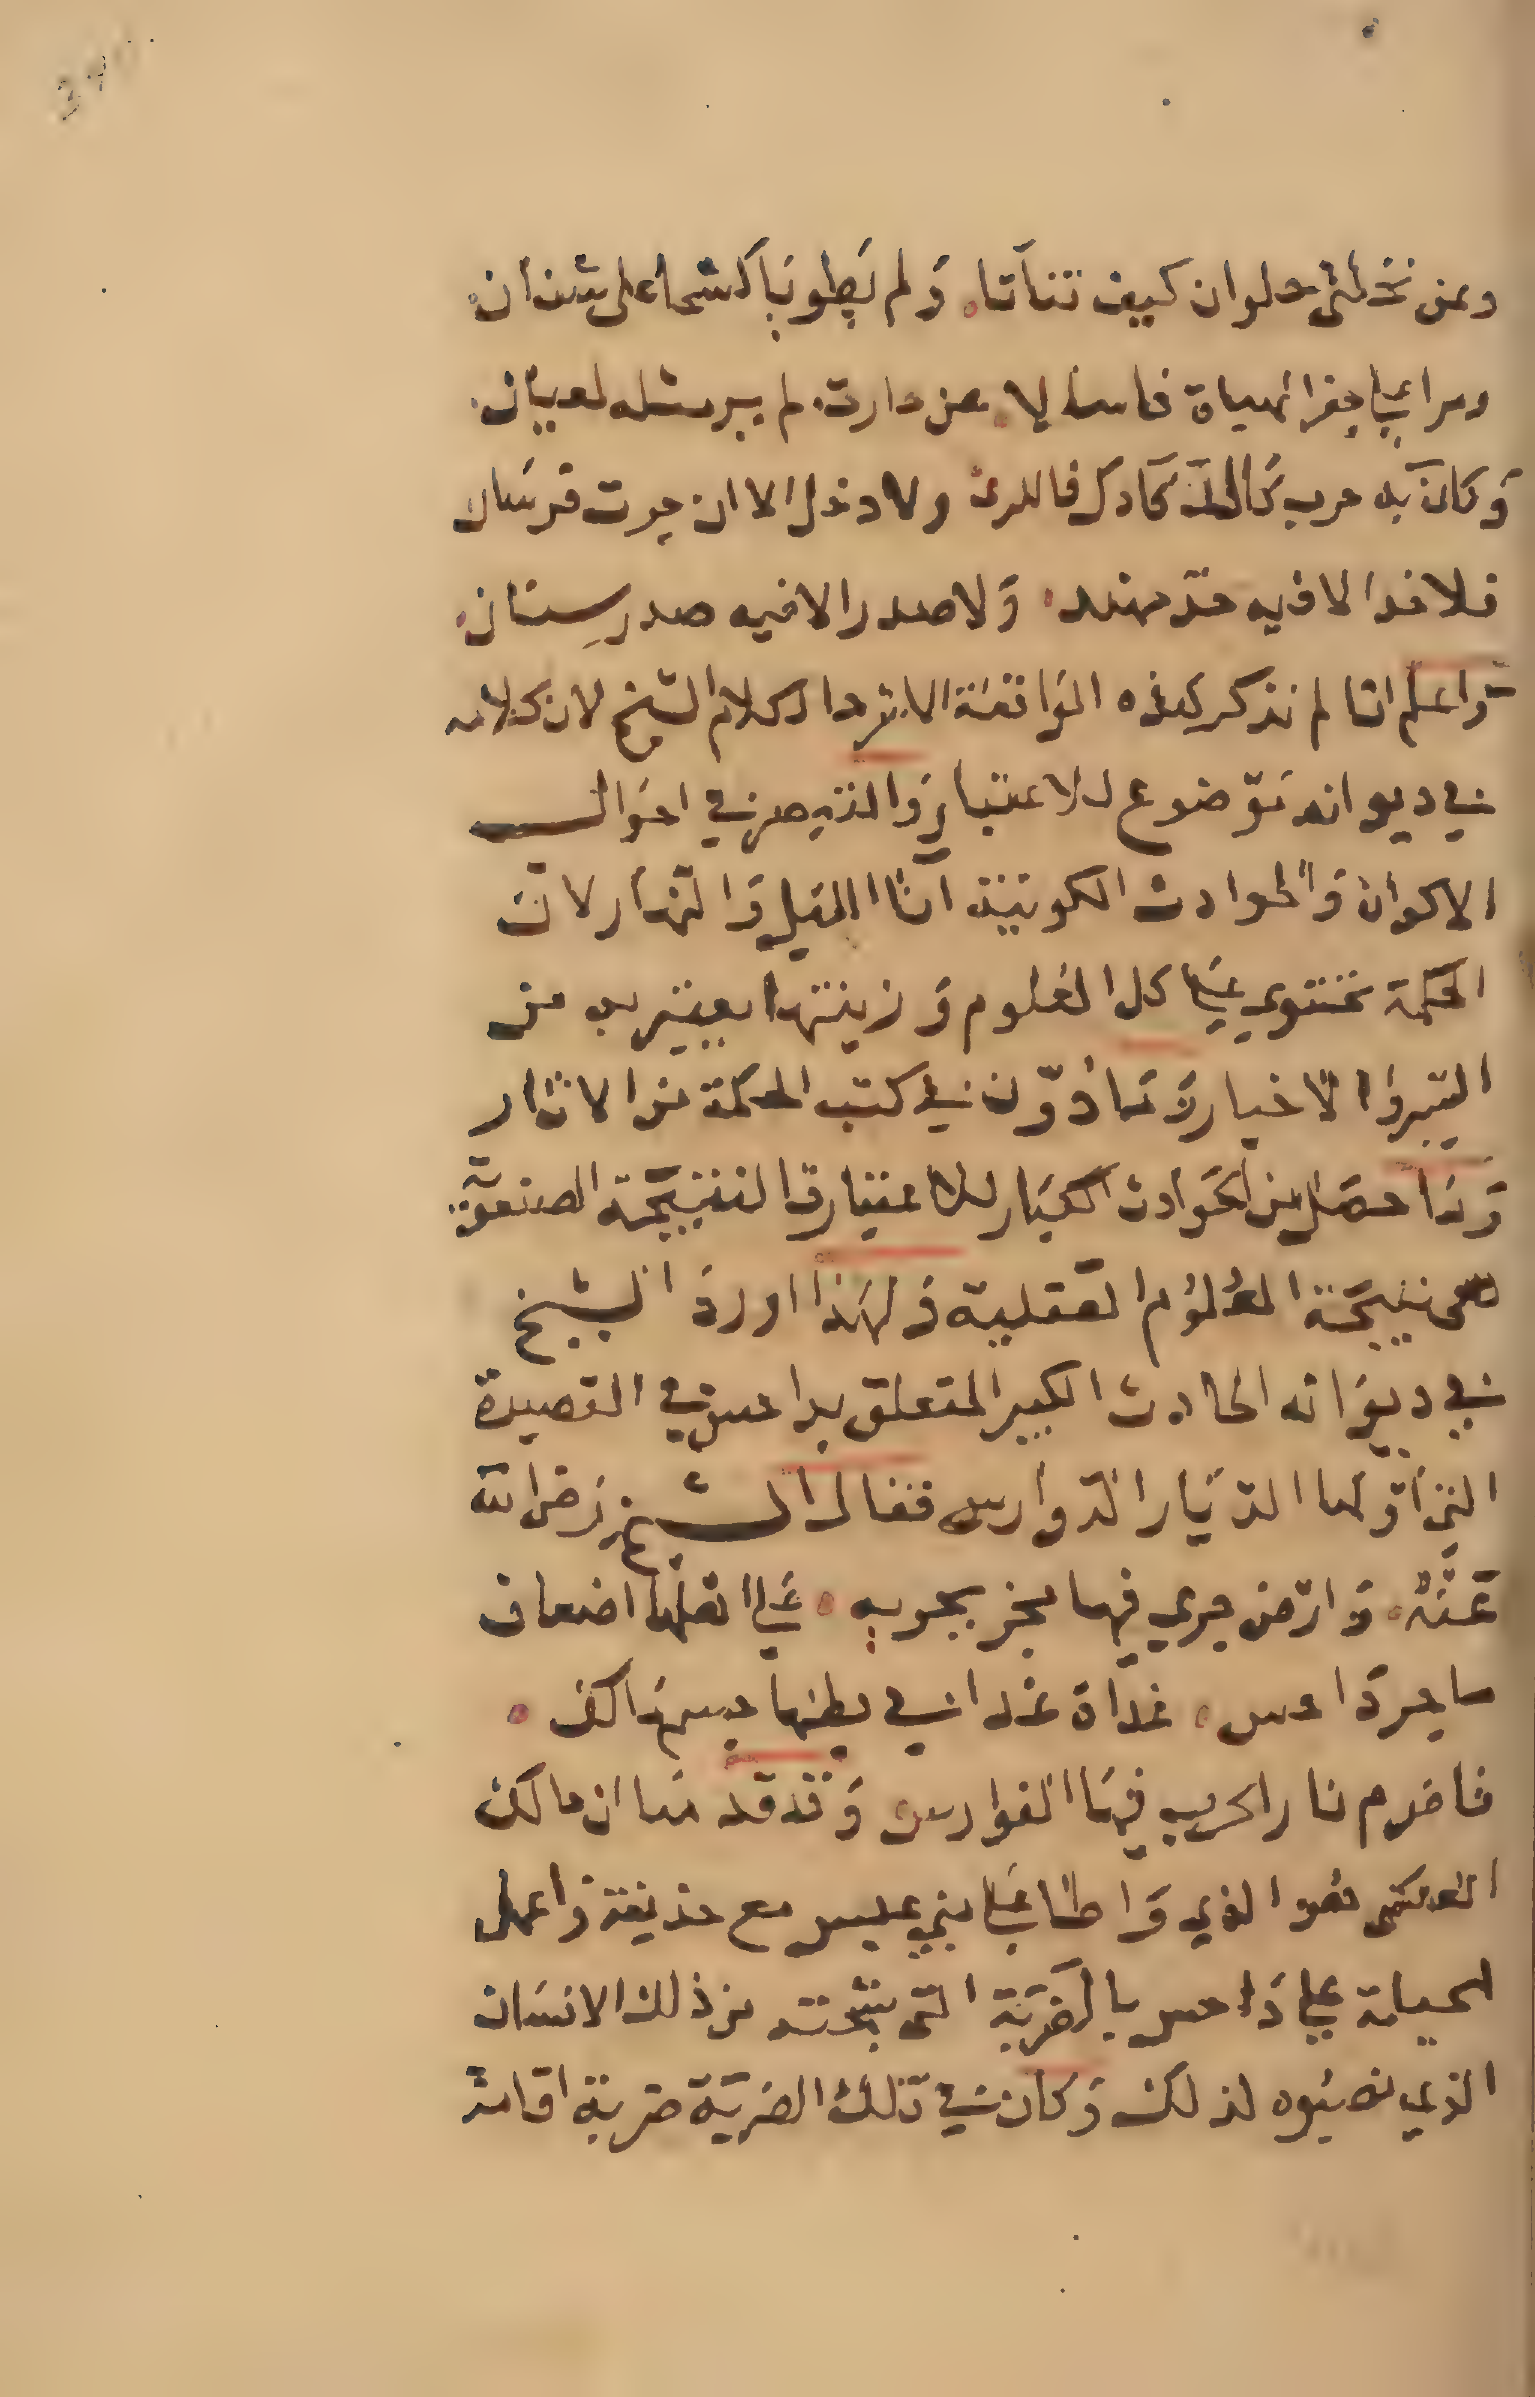 وعن نخلتي حلوان كيف تناتا ولم يطويا كشحا على شنان
ومرا على جفر الهباة فاسالا عن دارت لم ير مثله لعيان
وكان به حرب ولا دخل الا ان جرت فرسان
فلا خدا الا فيه خد مهند ولا صدرا الا فيه صدر سنان
واعلم اننا لم نذكر هذه الواقعة الا شرحا لكلام الشيخ لان كلامه
في ديوانه موضوع للاعتبار والتبصر في احوال
الاكوان والحوادث الكونية اناا الليل والنهار لان
الحكمة تحتوي على كل العلوم وزينتها يعتبر به من
السير والاخبار وما دون في كتب الحكمة من الاثار
وما حصل من الحوادث الكبار للاعتبار والنتيجة الصنعوية
هي نتيجة العلوم العقلية ولهذا اورد الشيخ
في ديوانه الحادث الكبير المتعلق بداحس في القصيدة
التي اولها الديار الدوارس فقال الشيخ رضي الله
عنه وارض جرى فيها بحر بحربه على اهلها اضعاف
ما جر داحس غداة غدا في بطنها جسم مالك
فاضرم نار الحرب فيها الفوارس وقد قدمنا ان مالك
العبسي هو الذي واطا على بني عبس مع حذيفة واعمل
الحيلة على داحس بالضربة التي نتجت من ذلك الانسان
الذي نصبوه لذلك وكان في تلك الضربة ضربة اقامت